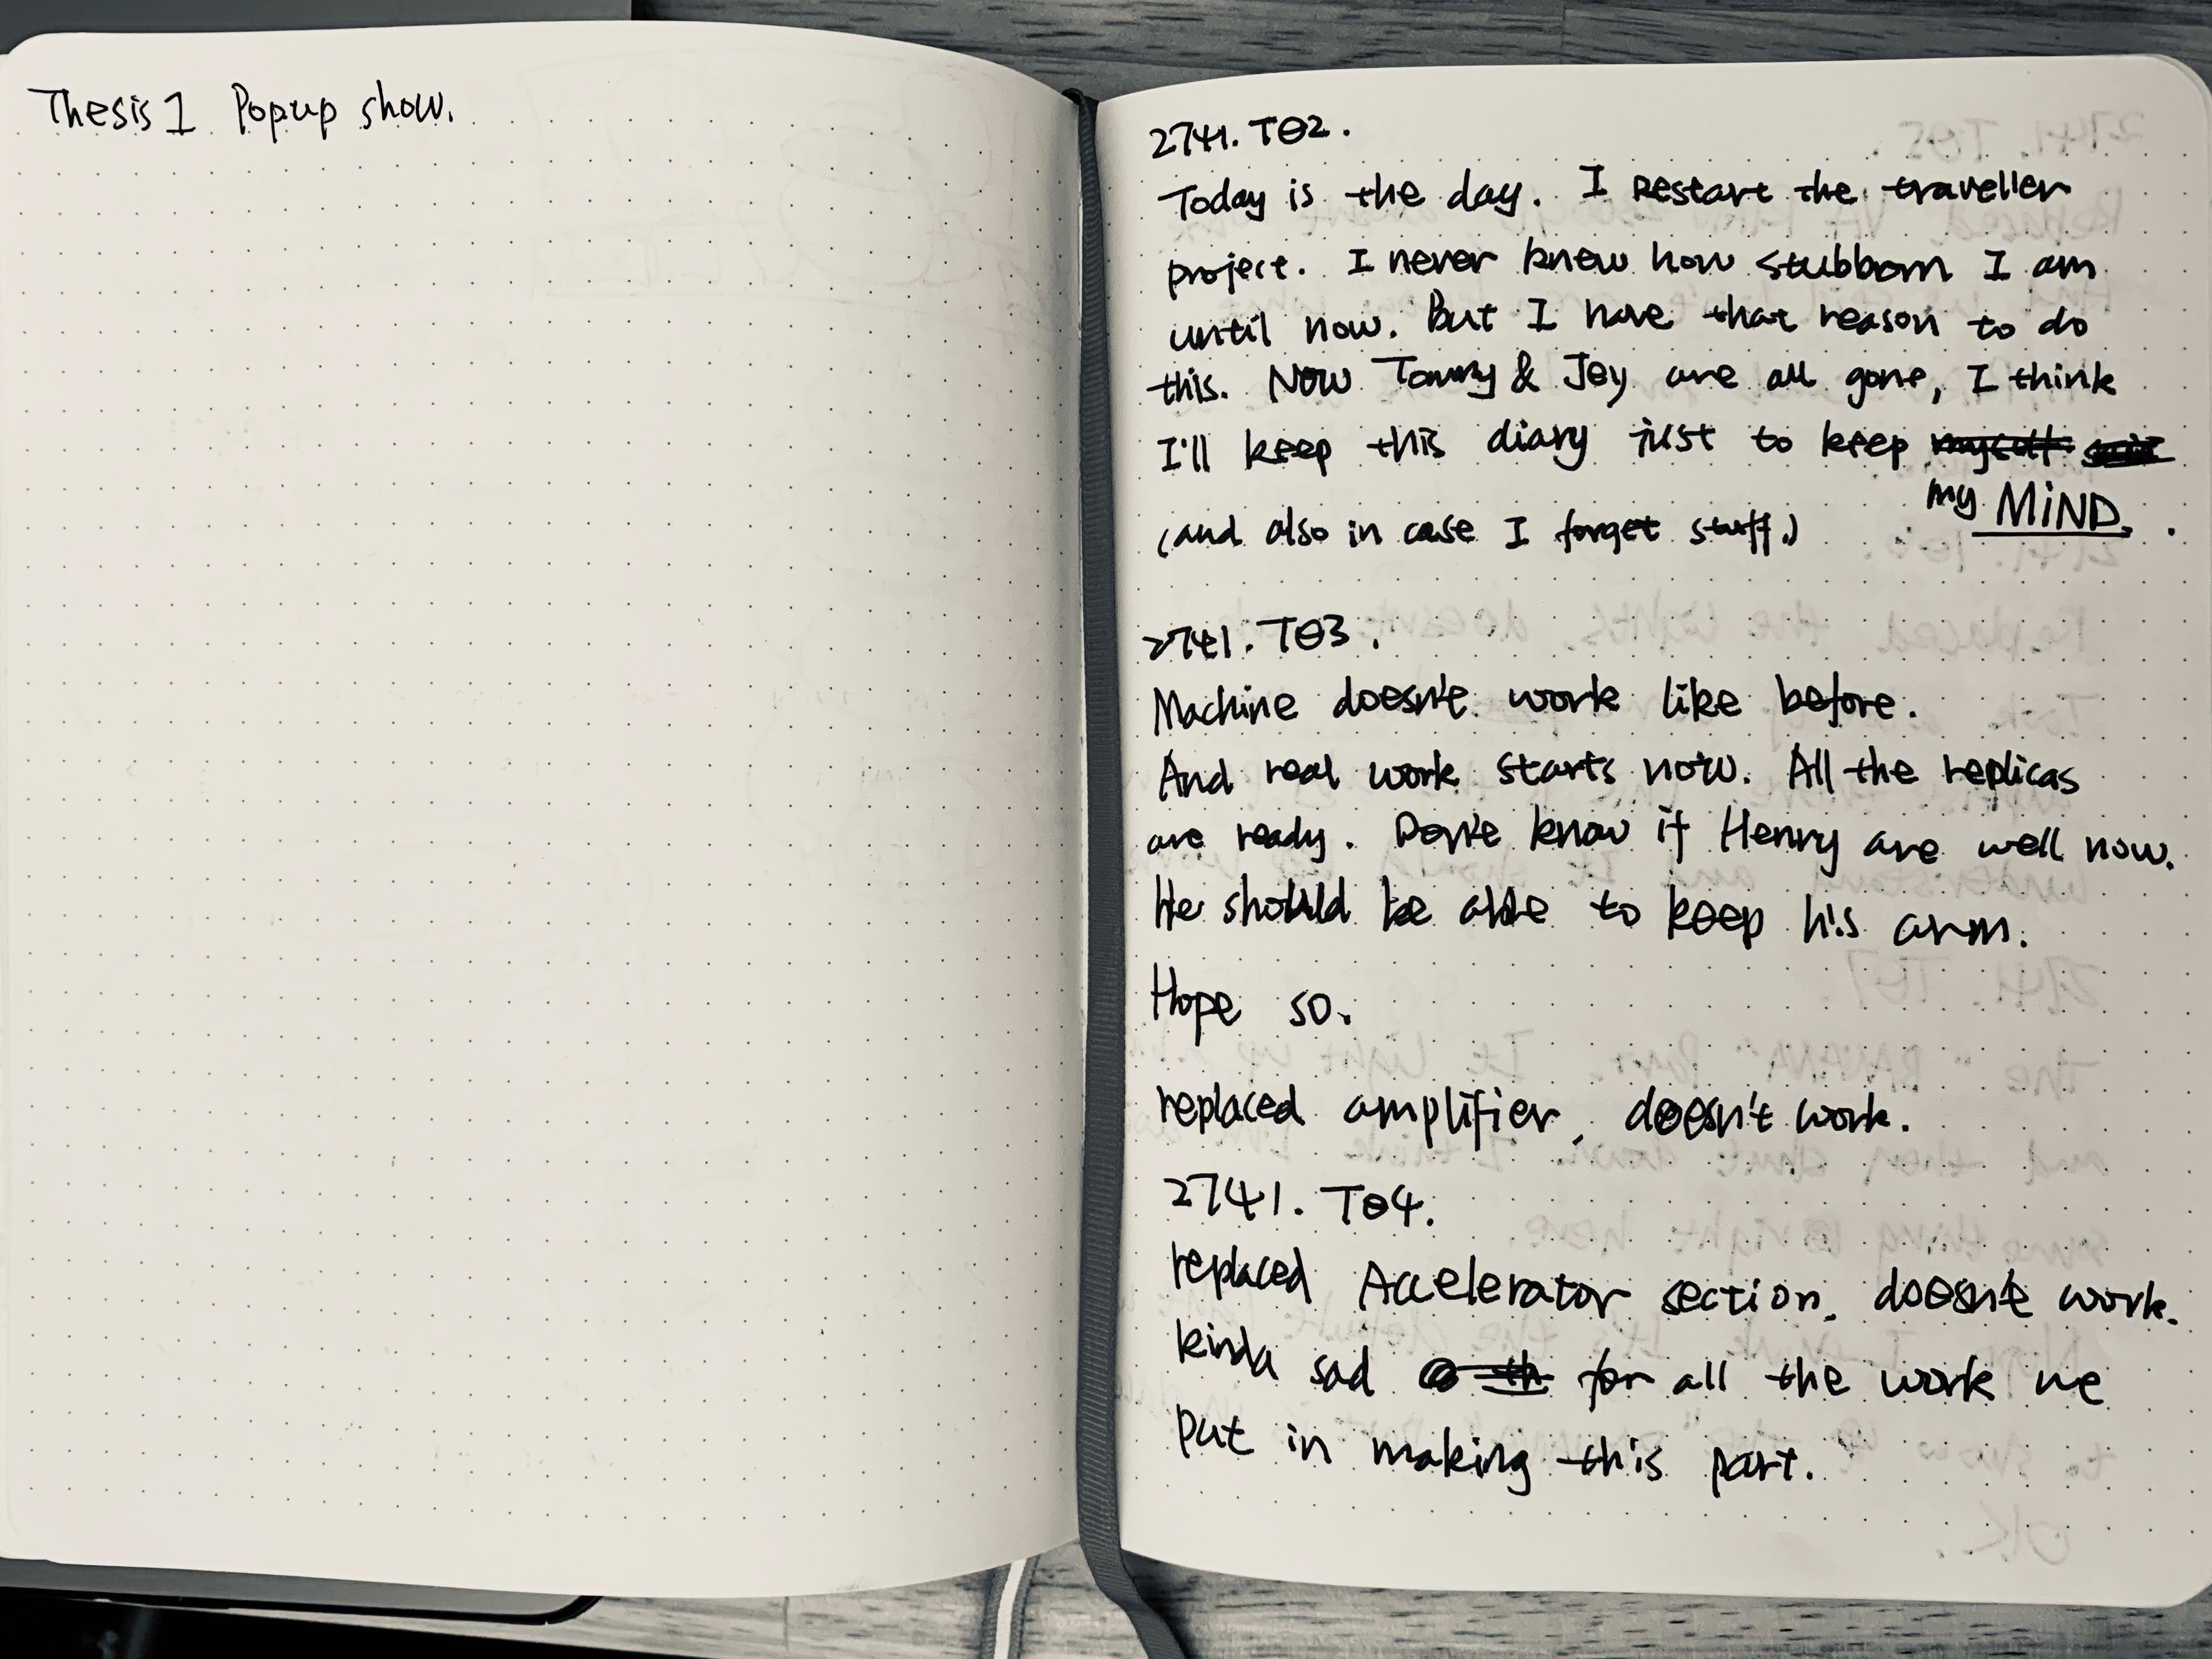 Thesis 1 Popup show.
2741. T02.
Today is the day. I Restart the traveller
project. I never knew how stubborn I am
until now. But I have that reason to do
this. Now Tommy & Joy are all gone, I think
I'll keep this diary just to keep
my MiND.
(and also in case I forget stuff.)
2741. T03.
Machine doesn't work like before.
And real work starts now. All the replicas
are ready. Don't know if Henry are well now.
He should be able to keep his arm.
Hope so.
replaced amplifier, doesn't work.
2741. T04.
replaced Accelerator section, doesn't work.
kinda sad for all the work we
put in making this part.